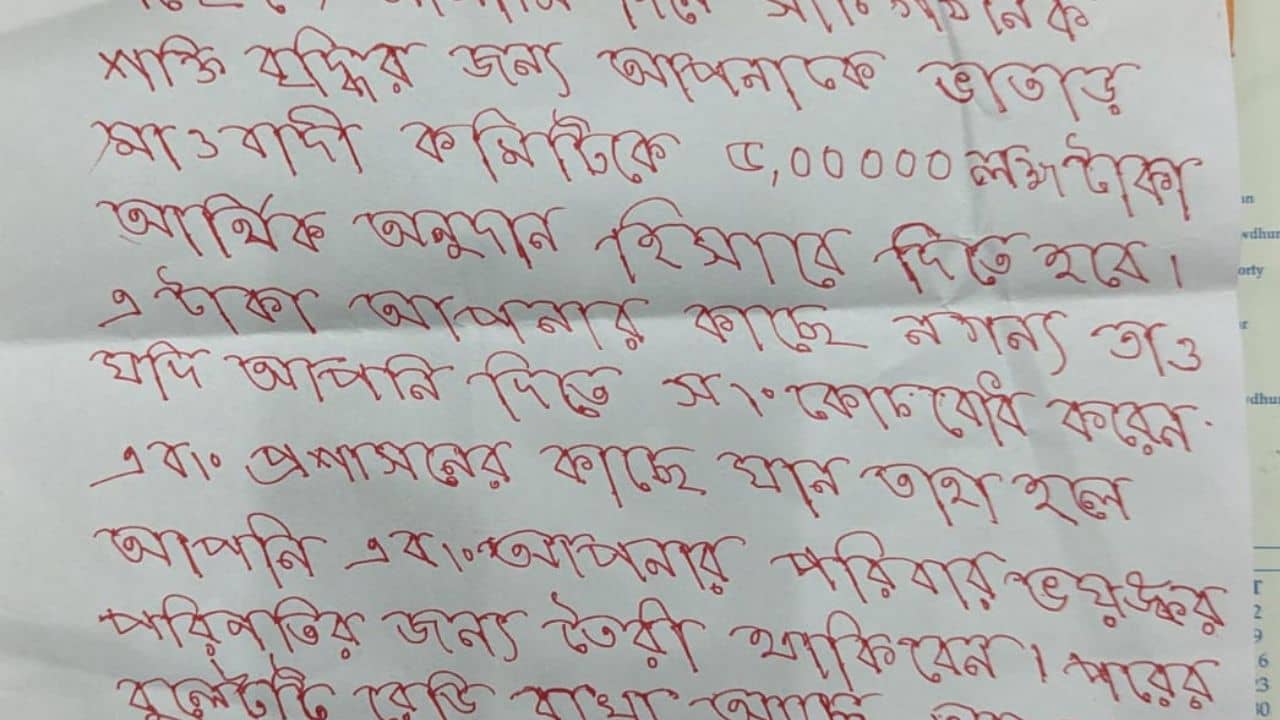 শক্তি বৃদ্ধির জন্য আপনাকে ভাতাড়
মাওবাদী কমিটিকে ৫,০০০০০ লক্ষ টাকা
আর্থিক অনুদান হিসাবে দিতে হবে।
এ টাকা আপনার কাছে নগন্য তাও
যদি আপনি দিতে সংকোচবোধ করেন
এবং প্রশাসনের কাছে যান তাহা হলে
আপনি এবং আপনার পরিবার ভয়ঙ্কর
পরিণতির জন্য তৈরী থাকিবেন। পরের
বুলেটটি রেডি রাখা আছে